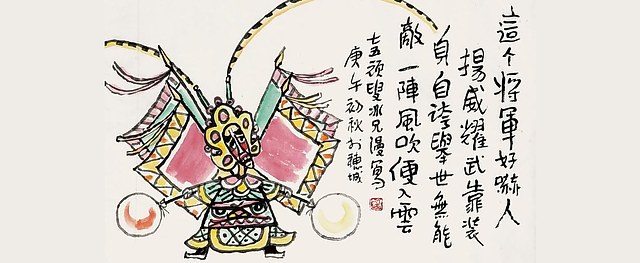 這个將軍好嚇人
揚威耀武靠裝
身自誇舉世無能
敵一陣風吹便入雲
七五頑叟冰兄漫寫
庚午初秋於穗城